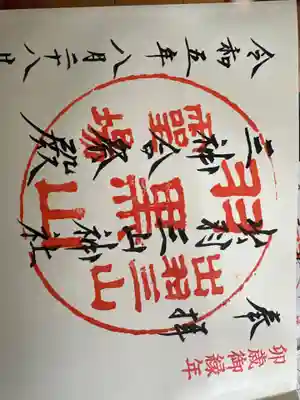 卯歳御縁年
奉拝
出羽三山神社
三神合祭殿
令和五年八月二十八日
出羽三山
羽黒山
霊場